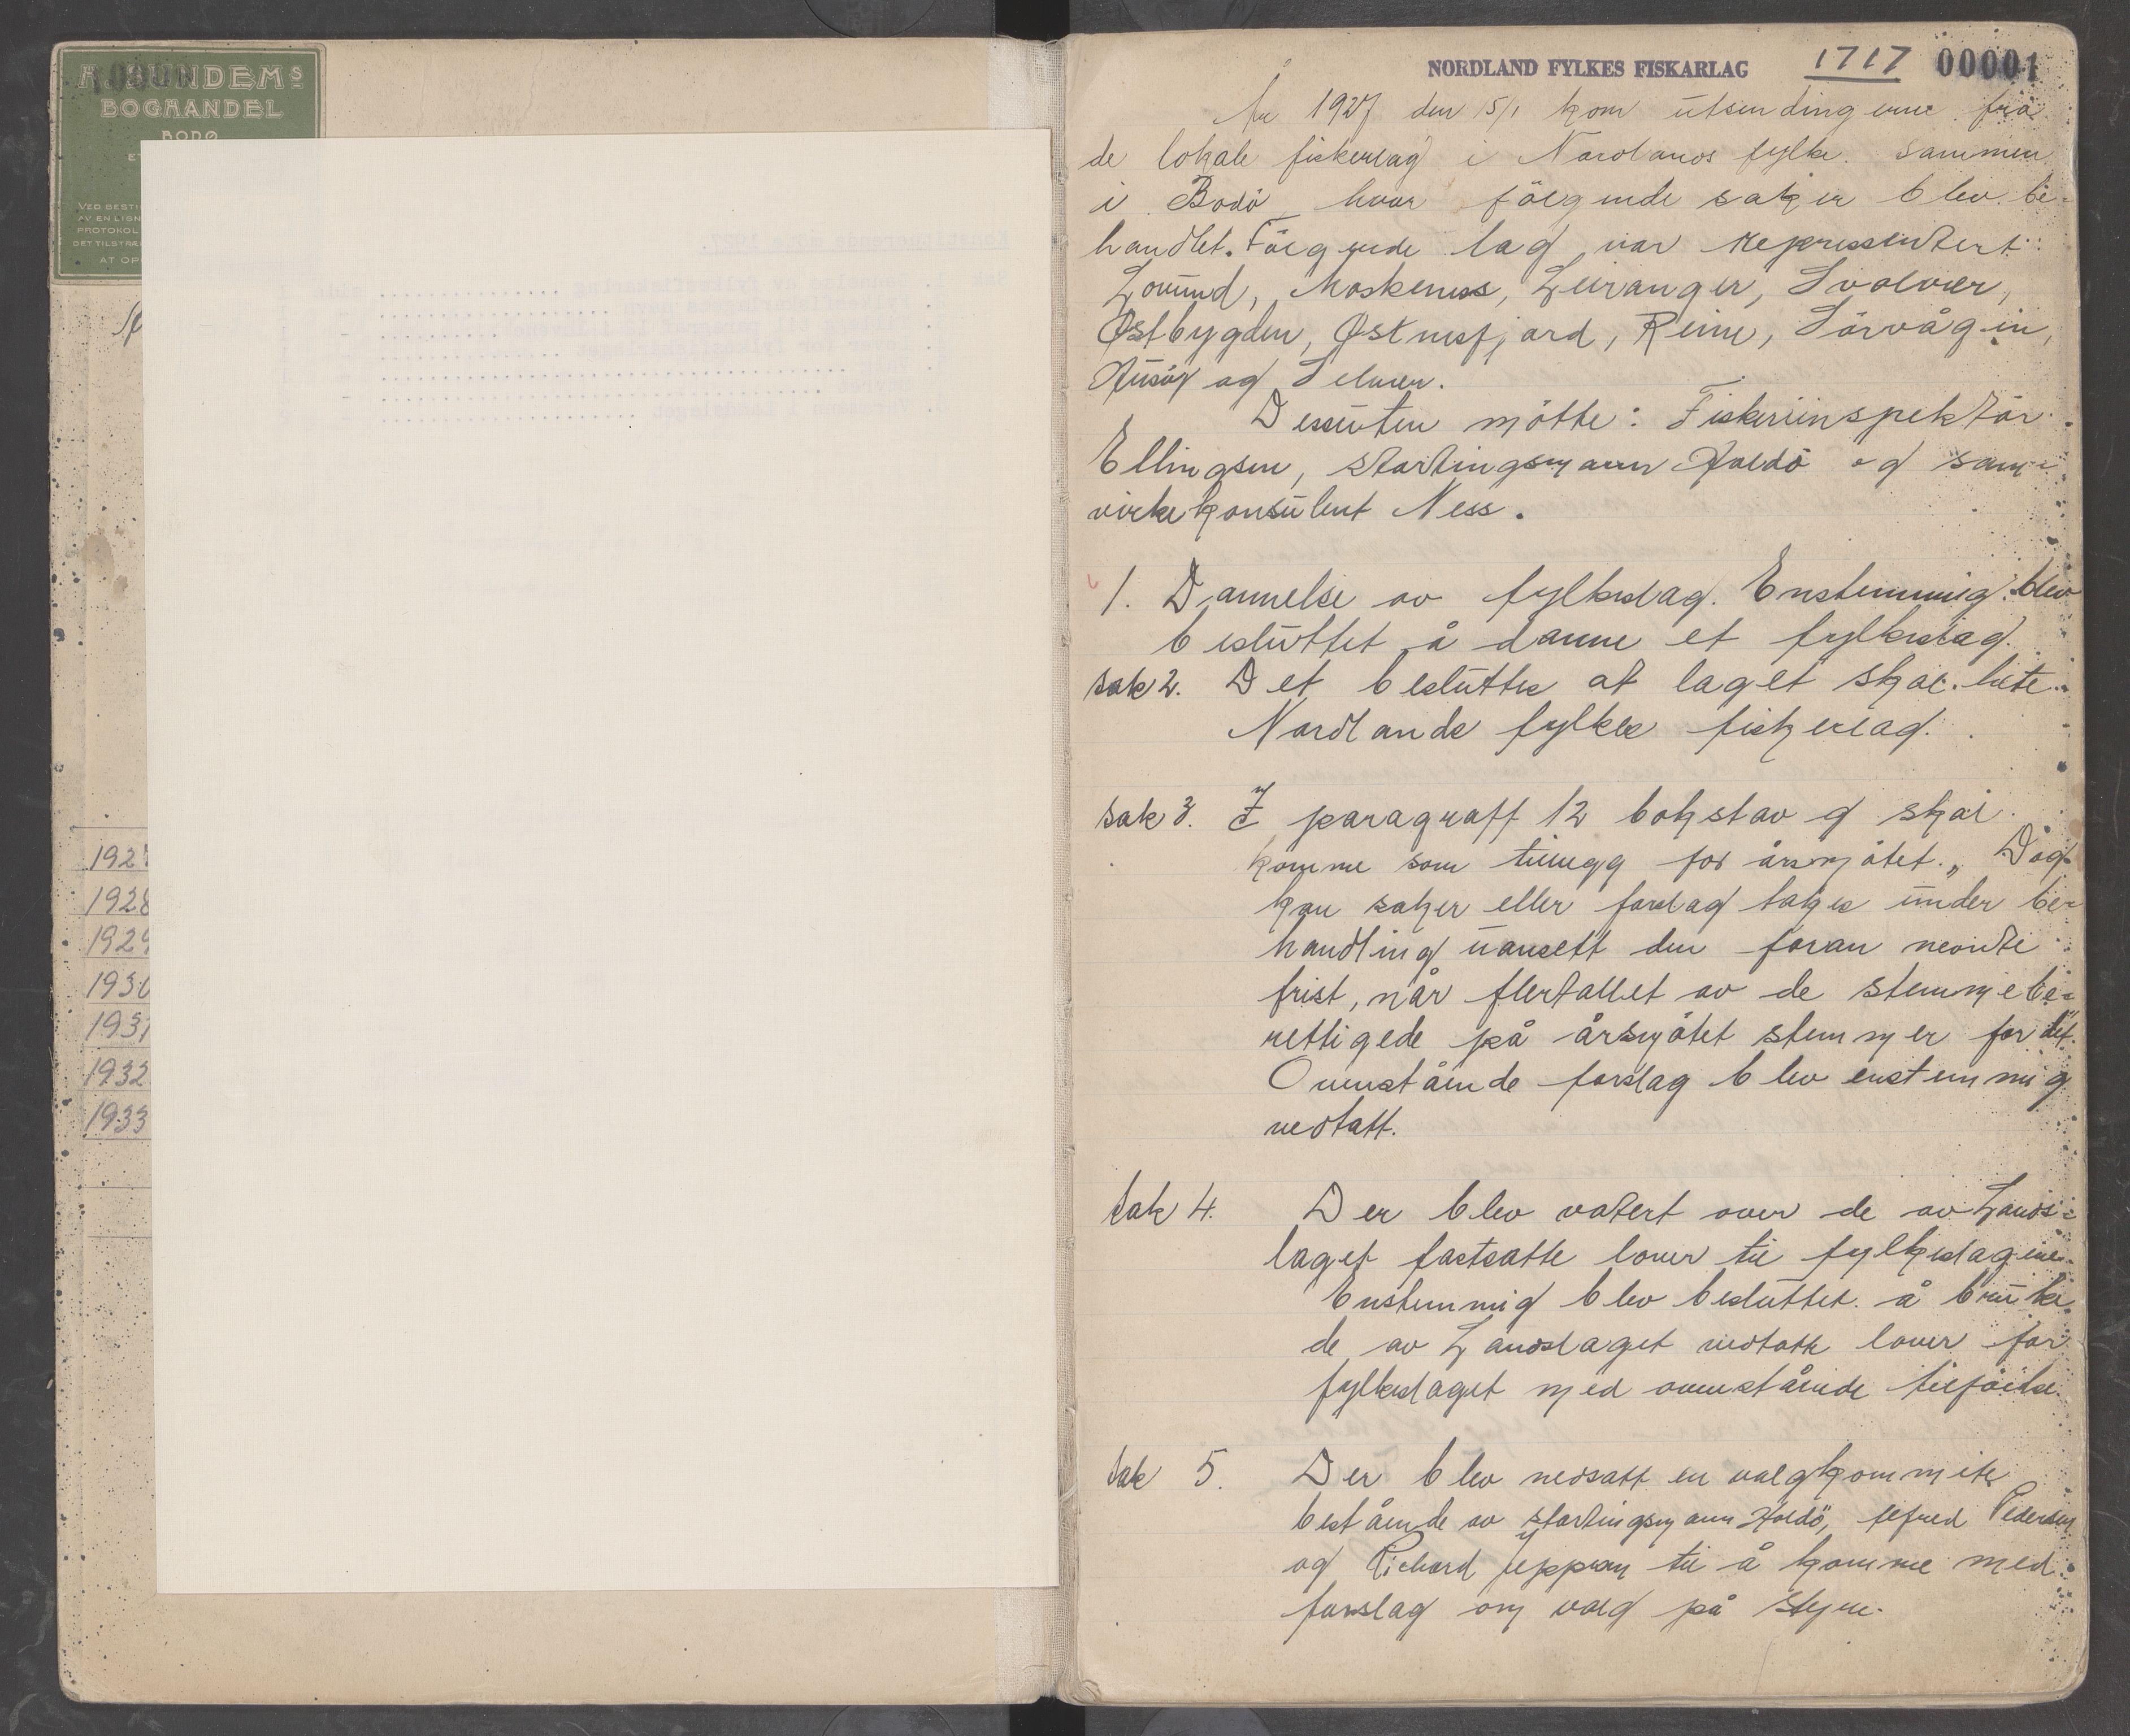 SUNDEMS
BOGHANDEL
BODØ
VED BESTI
AV EN LIGN
PROTOKOL
DET TILSTRÆ
AT OP
1927
1928
1929
1930
1931
1932
1933
NORDLAND FYLKES FISKARLAG 1717 00001
År 1927 den 15/1 kom utsendingerne fra
de lokale fiskerlag i Nordlands fylke sammen
i Bodö hvor fölgende saker blev be-
handlet. Fölgende lag var representert:
Lovund, Moskenes, Leiranger, Svolvær,
Østbygden, Østnesfjord, Reine, Sörvågen,
Husöy og Selvær.
Dessuten mötte: Fiskeriinspektör
Ellingsen, stortingsmann Holdö og sam-
virkekonsulent Ness.
1. Dannelse av fylkeslag. Enstemmig blev
besluttet å danne et fylkeslag.
Sak 2. Det besluttes at laget skal hete
Nordlands fylkes fiskerlag.
Sak 3. I paragraff 12 bokstav g skal
komme som tillegg for årsmötet. „Dog
kan saker eller forslag takes under be-
handling uansett den foran nevnte
frist, når flertallet av de stemmebe-
rettigede på årsmötet stemmer for det."
Ovenstående forslag blev enstemmig
vedtatt.
Sak 4. Der blev votert over de av Lands-
laget fastsatte lover til fylkeslagene.
Enstemmig blev besluttet å bruke
de av Landslaget vedtatte lover for
fylkeslaget med ovenstående tilföielse.
Sak 5. Der blev nedsatt en valgkommite
bestående av stortingsmann Holdö, Alfred Pedersen
og Richard Jeppsen til å komme med
forslag om valg på styre.